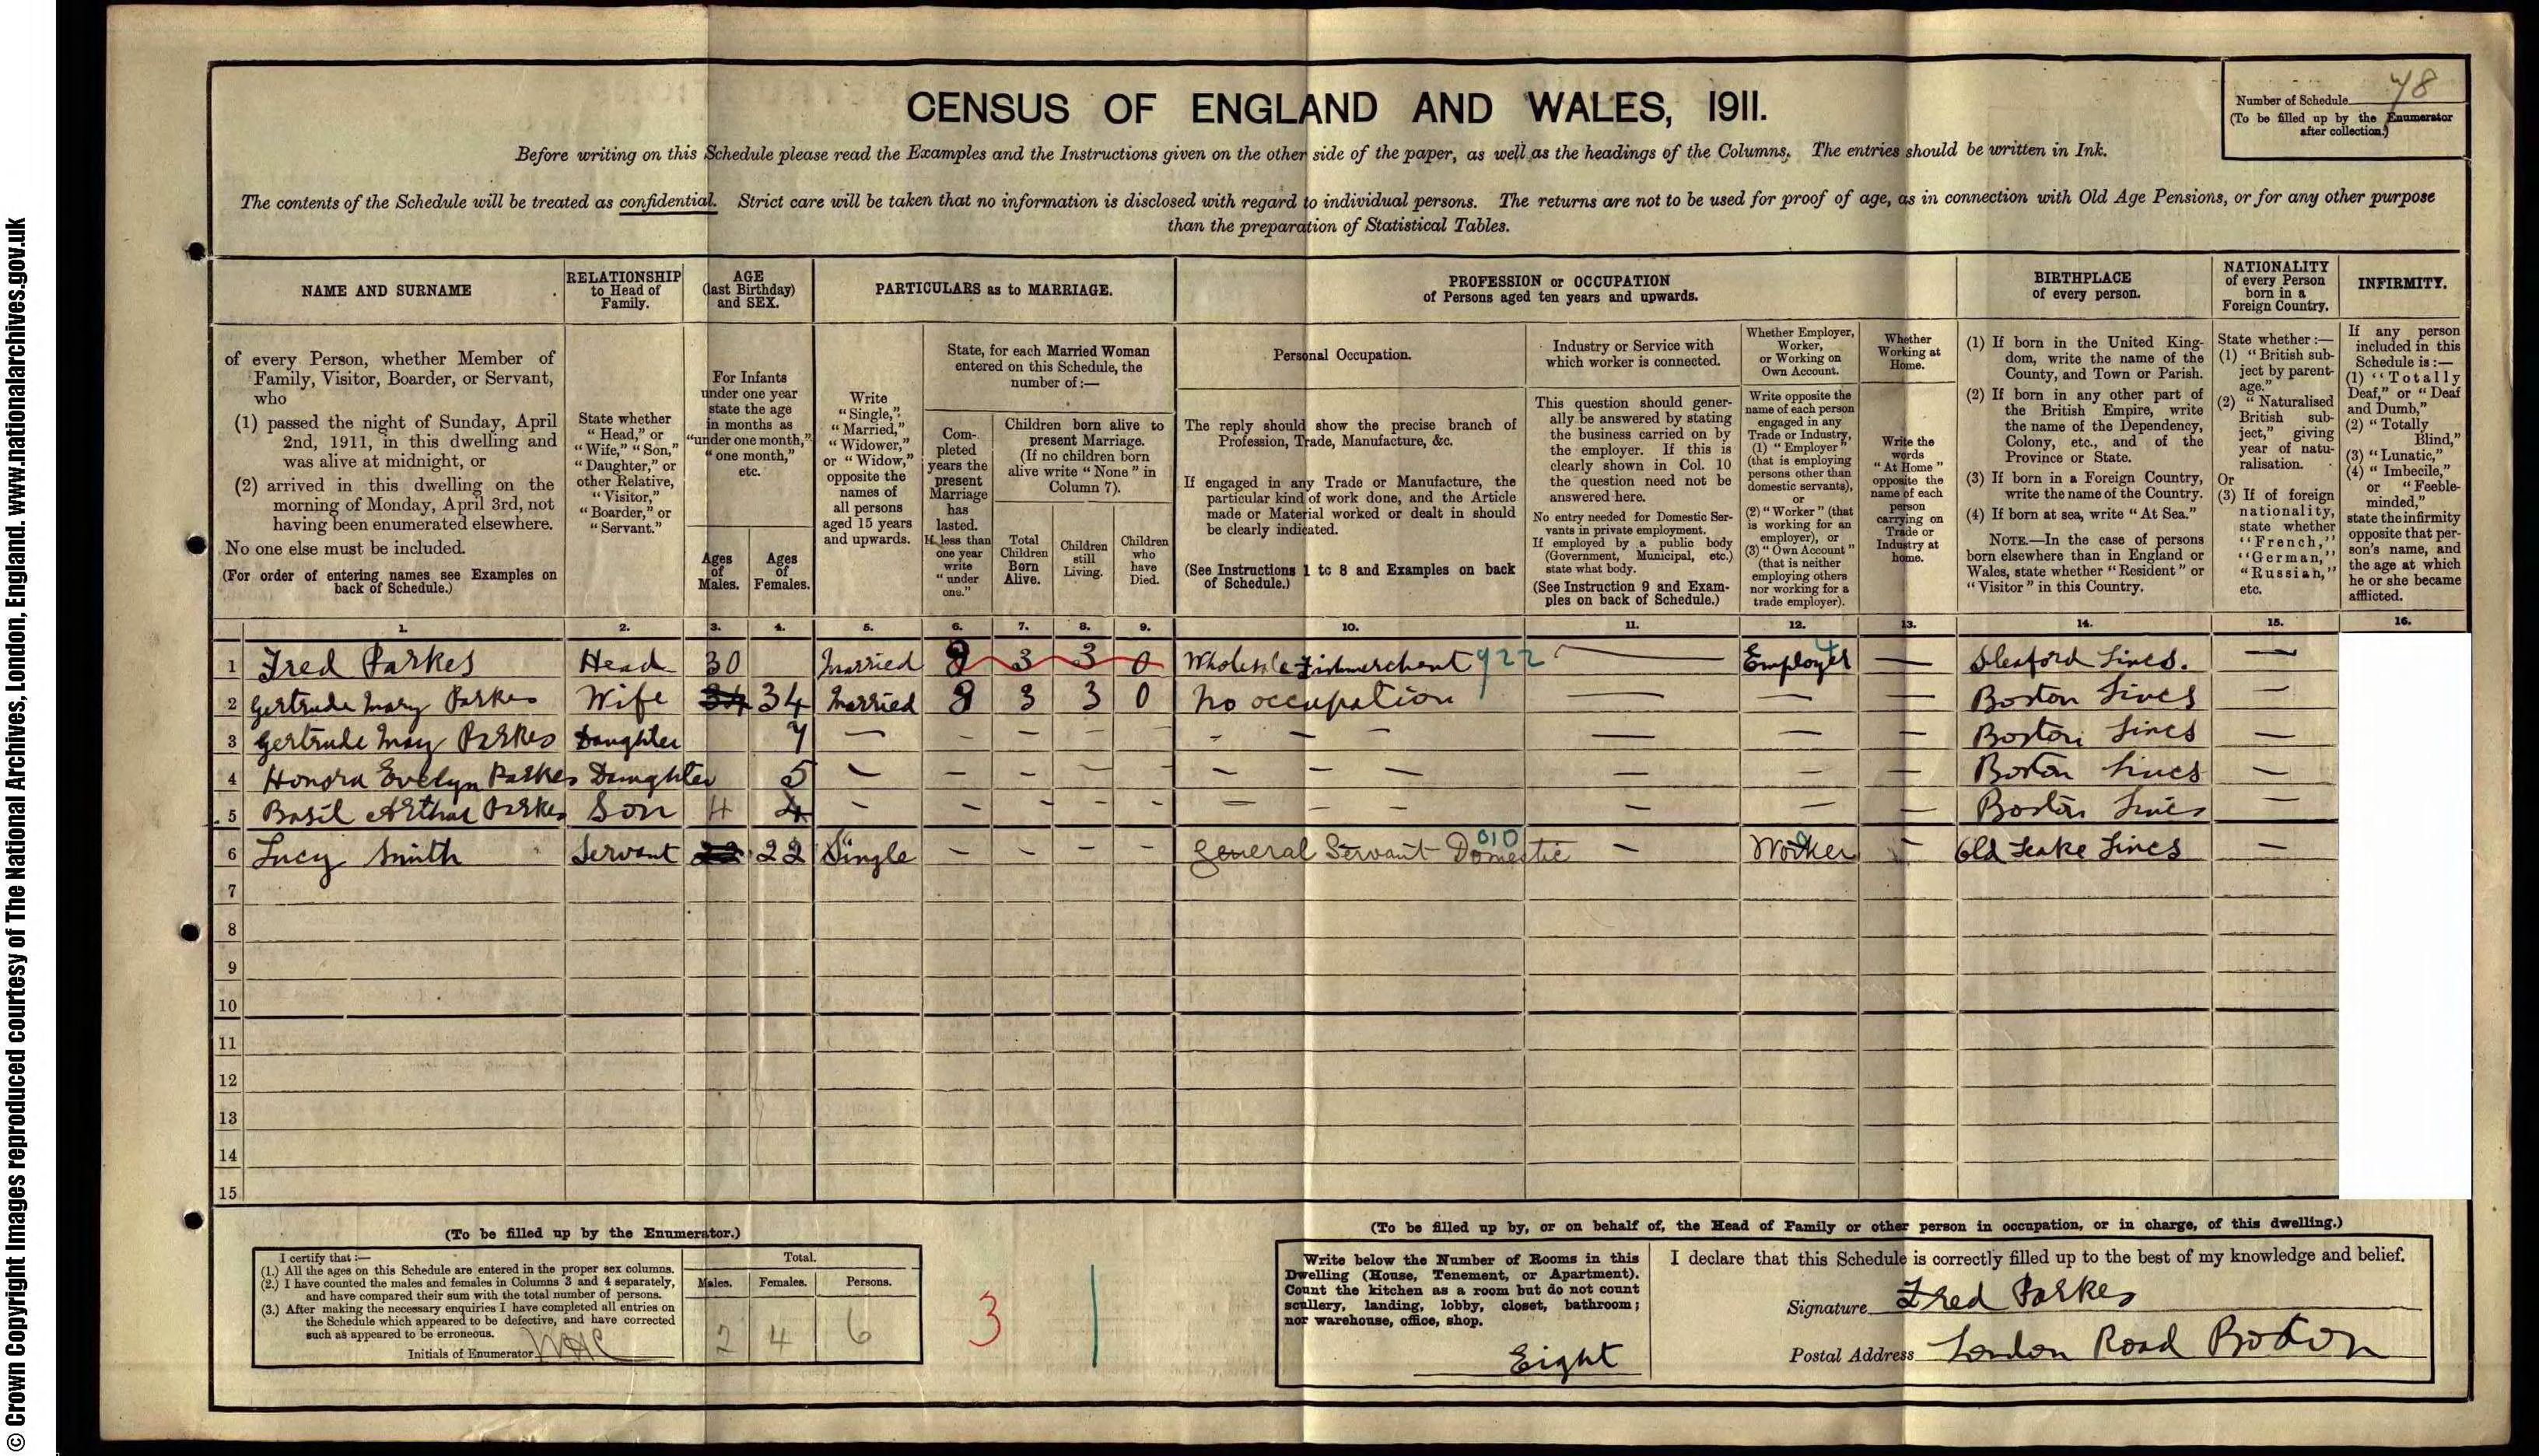 © Crown Copyright Images reproduced courtesy of The National Archives, London, England. www.nationalarchives.gov.uk
CENSUS OF ENGLAND AND WALES, 1911.
Number of Schedule 78
(To be filled up by the Enumerator
after collection.)
Before writing on this Schedule please read the Examples and the Instructions given on the other side of the paper, as well as the headings of the Columns. The entries should be written in Ink.
The contents of the Schedule will be treated as confidential. Strict care will be taken that no information is disclosed with regard to individual persons. The returns are not to be used for proof of age, as in connection with Old Age Pensions, or for any other purpose
than the preparation of Statistical Tables.
NAME AND SURNAME
of every Person, whether Member of
Family, Visitor, Boarder, or Servant,
who
(1) passed the night of Sunday, April
2nd, 1911, in this dwelling and
was alive at midnight, or
(2) arrived in this dwelling on the
morning of Monday, April 3rd, not
having been enumerated elsewhere.
No one else must be included.
(For order of entering names see Examples on
back of Schedule.)
RELATIONSHIP
to Head of
Family.
State whether
"Head," or
"Wife," "Son,"
"Daughter," or
other Relative,
"Visitor,"
"Boarder," or
"Servant."
AGE
(last Birthday)
and SEX.
For Infants
under one year
state the age
in months as
"under one month,"
"one month,"
etc.
Ages
of
Males.
Ages
of
Females.
PARTICULARS as to MARRIAGE.
Write
"Single,"
"Married,"
"Widower,"
or "Widow,"
opposite the
names of
all persons
aged 15 years
and upwards.
State, for each Married Woman
entered on this Schedule, the
number of :—
Com-
pleted
years the
present
Marriage
has
lasted.
If less than
one year
write
"under
one."
Children born alive to
present Marriage.
(If no children born
alive write "None" in
Column 7).
Total
Children
Born
Alive.
Children
still
Living.
Children
who
have
Died.
PROFESSION or OCCUPATION
of Persons aged ten years and upwards.
Personal Occupation.
The reply should show the precise branch of
Profession, Trade, Manufacture, &c.
If engaged in any Trade or Manufacture, the
particular kind of work done, and the Article
made or Material worked or dealt in should
be clearly indicated.
(See Instructions 1 to 8 and Examples on back
of Schedule.)
Industry or Service with
which worker is connected.
This question should gener-
ally be answered by stating
the business carried on by
the employer. If this is
clearly shown in Col. 10
the question need not be
answered here.
No entry needed for Domestic Ser-
vants in private employment.
If employed by a public body
(Government, Municipal, etc.)
state what body.
(See Instruction 9 and Exam-
ples on back of Schedule.)
Whether Employer,
Worker,
or Working on
Own Account.
Write opposite the
name of each person
engaged in any
Trade or Industry,
(1) "Employer"
(that is employing
persons other than
domestic servants),
or
(2) "Worker" (that
is working for an
employer), or
(3) "Own Account"
(that is neither
employing others
nor working for a
trade employer).
Whether
Working at
Home.
Write the
words
"At Home"
opposite the
name of each
person
carrying on
Trade or
Industry at
home.
BIRTHPLACE
of every person.
(1) If born in the United King-
dom, write the name of the
County, and Town or Parish.
(2) If born in any other part of
the British Empire, write
the name of the Dependency,
Colony, etc., and of the
Province or State.
(3) If born in a Foreign Country,
write the name of the Country.
(4) If born at sea, write "At Sea."
NOTE.—In the case of persons
born elsewhere than in England or
Wales, state whether "Resident" or
"Visitor" in this Country.
NATIONALITY
of every Person
born in a
Foreign Country.
State whether :—
(1) "British sub-
ject by parent-
age."
(2) "Naturalised
British sub-
ject," giving
year of natu-
ralisation.
Or
(3) If of foreign
nationality,
state whether
"French,"
"German,"
"Russian,"
etc.
INFIRMITY.
If any person
included in this
Schedule is :—
(1) "Totally
Deaf," or "Deaf
and Dumb,"
(2) "Totally
Blind,"
(3) "Lunatic,"
(4) "Imbecile,"
or "Feeble-
minded,"
state the infirmity
opposite that per-
son's name, and
the age at which
he or she became
afflicted.
1. 2. 3. 4. 5. 6. 7. 8. 9. 10. 11. 12. 13. 14. 15. 16.
1 Fred Parkes Head 30 Married 8 3 3 0 Wholesale Fishmerchant 922 — Employer — Sleaford Lincs. —
2 Gertrude Mary Parkes Wife 34 34 Married 8 3 3 0 No occupation — — — Boston Lincs —
3 Gertrude May Parkes Daughter 7 — — — — — — — — — — — Boston Lincs —
4 Honora Evelyn Parkes Daughter 5 — — — — — — — — — — — Boston Lincs —
5 Basil Arthur Parkes Son 4 4 — — — — — — — — — — — Boston Lincs —
6 Lucy Smith Servant 22 22 Single — — — — General Servant Domestic 010 — Worker — Old Leake Lincs —
7
8
9
10
11
12
13
14
15
(To be filled up by the Enumerator.)
I certify that :—
(1.) All the ages on this Schedule are entered in the proper sex columns.
(2.) I have counted the males and females in Columns 3 and 4 separately,
and have compared their sum with the total number of persons.
(3.) After making the necessary enquiries I have completed all entries on
the Schedule which appeared to be defective, and have corrected
such as appeared to be erroneous.
Initials of Enumerator
Total.
Males. Females. Persons.
2 4 6
3
(To be filled up by, or on behalf of, the Head of Family or other person in occupation, or in charge, of this dwelling.)
Write below the Number of Rooms in this
Dwelling (House, Tenement, or Apartment).
Count the kitchen as a room but do not count
scullery, landing, lobby, closet, bathroom;
nor warehouse, office, shop.
Eight
I declare that this Schedule is correctly filled up to the best of my knowledge and belief.
Signature Fred Parkes
Postal Address London Road Boston